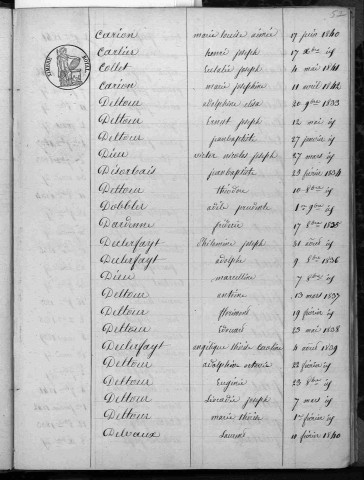 52
TIMBRE ROYAL
Carion marie louise aimée 17 juin 1840
Carlier henri joseph 17 xbre id
Collet Eulalie joseph 4 mai 1841
Carion marie joséphine 11 avril 1842
Dettour adolphine elisa 20 9bre 1833
Dettour Ernest joseph 12 mai id
Dettour jeanbaptiste 27 janvier id
Dieu victor nicolas joseph 27 mars id
Diserbais jeanbaptiste 23 février 1834
Dettour théodore 10 8bre id
Dobbler adèle prudente 1er 9bre id
Dardenne frédéric 17 8bre 1835
Dieterfayt Philomène joseph 31 août id
Dieterfayt adolphe 9 8bre 1836
Dieu marcelline 7 8bre id
Dettour antoine 13 mars 1837
Dettour florimond 19 février id
Dettour Edouard 23 mai 1838
Dieterfayt angélique thérèse caroline 4 août 1839
Dettour adolphine octavie 22 février id
Dettour Eugénie 23 8bre id
Dettour Léocadie joseph 7 mars id
Dettour marie thérèse 1er février id
Delvaux Laurent 11 février 1840